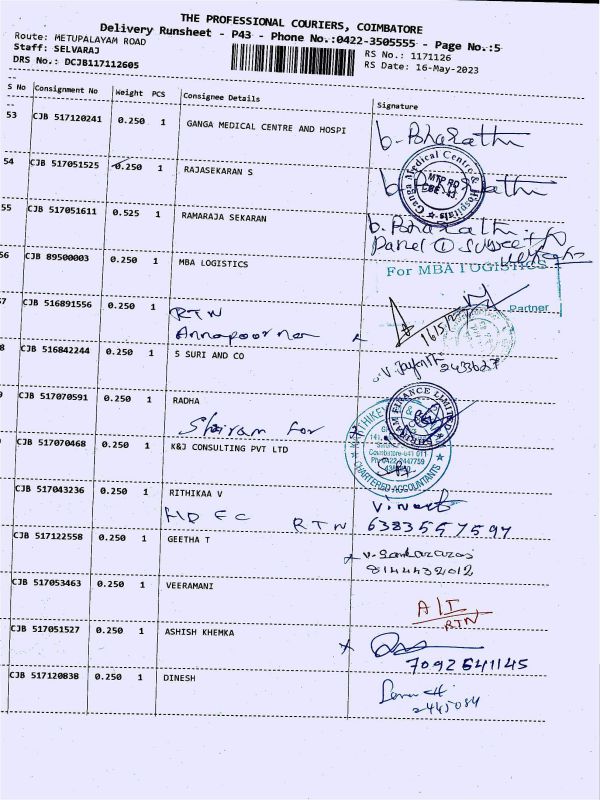 THE PROFESSIONAL COURIERS, COIMBATORE
Delivery Runsheet - P43 - Phone No.:0422-3505555 - Page No.:5
Route: METUPALAYAM ROAD
Staff: SELVARAJ
RS No.: 1171126
DRS No.: DCJB117112605
RS Date: 16-May-2023
S No Consignment No Weight PCS Consignee Details Signature
53 CJB 517120241 0.250 1 GANGA MEDICAL CENTRE AND HOSPI
b. Bharathi
Ganga Medical Centre & Hospitals
MTP RD
CBE-43
54 CJB 517051525 0.250 1 RAJASEKARAN S
55 CJB 517051611 0.525 1 RAMARAJA SEKARAN
b. Bharathi
56 CJB 89500003 0.250 1 MBA LOGISTICS
For MBA LOGISTICS
Partner
7 CJB 516891556 0.250 1
RTN
Annapoorna
16/5/
8 CJB 516842244 0.250 1 S SURI AND CO
2433627
CJB 517070591 0.250 1 RADHA
Shriram For
SHRIRAM FINANCE LIMITED
CJB 517070468 0.250 1 K&J CONSULTING PVT LTD
Coimbatore-641 011
CHARTERED ACCOUNTANTS
CJB 517043236 0.250 1 RITHIKAA V
HDFC RTN
Vinoth
6383557597
CJB 517122558 0.250 1 GEETHA T
8144432012
CJB 517053463 0.250 1 VEERAMANI
A/I
RTN
CJB 517051527 0.250 1 ASHISH KHEMKA
7092641145
CJB 517120838 0.250 1 DINESH
2445084